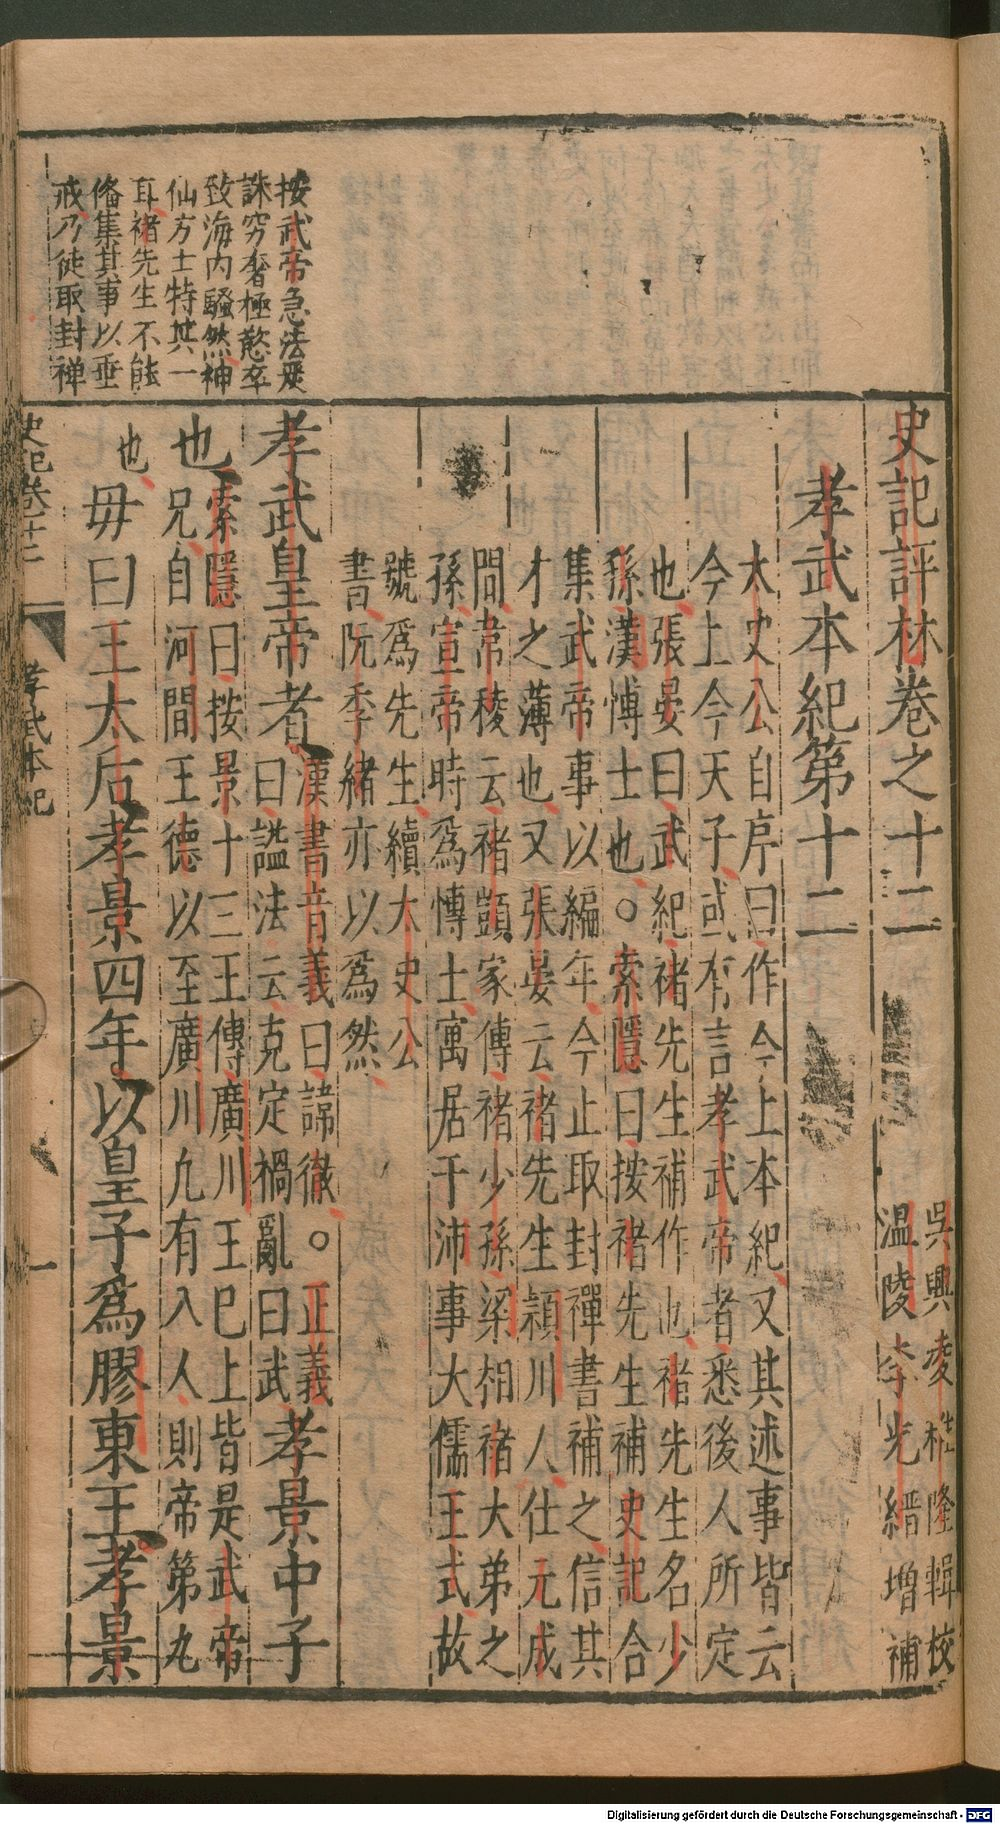 史記評林卷之十二
吳興凌稚隆輯校
溫陵李光縉增補
孝武本紀第十二
太史公自序曰作今上本紀又其述事皆云
今上今天子或有言孝武帝者悉後人所定
也張晏曰武紀褚先生補作也褚先生名少
孫漢博士也○索隱曰按褚先生補史記合
集武帝事以編年今止取封禪書補之信其
才之薄也又張晏云褚先生潁川人仕元成
間韋稜云褚顗家傳褚少孫梁相褚大弟之
孫宣帝時爲博士寓居于沛事大儒王式故
號爲先生續太史公
書阮孝緒亦以爲然
孝武皇帝者漢書音義曰諱徹○正義
曰諡法云克定禍亂曰武孝景中子
也索隱曰按景十三王傳廣川王巳上皆是武帝
兄自河間王德以至廣川凢有八人則帝第九
也毋曰王太后孝景四年以皇子爲膠東王孝景
按武帝急法淫
誅窮奢極慾卒
致海内騷然神
仙方士特其一
耳褚先生不能
俻集其事以垂
戒乃徒取封禅
史記卷十二
孝武本紀
一
Digitalisierung gefördert durch die Deutsche Forschungsgemeinschaft - DFG